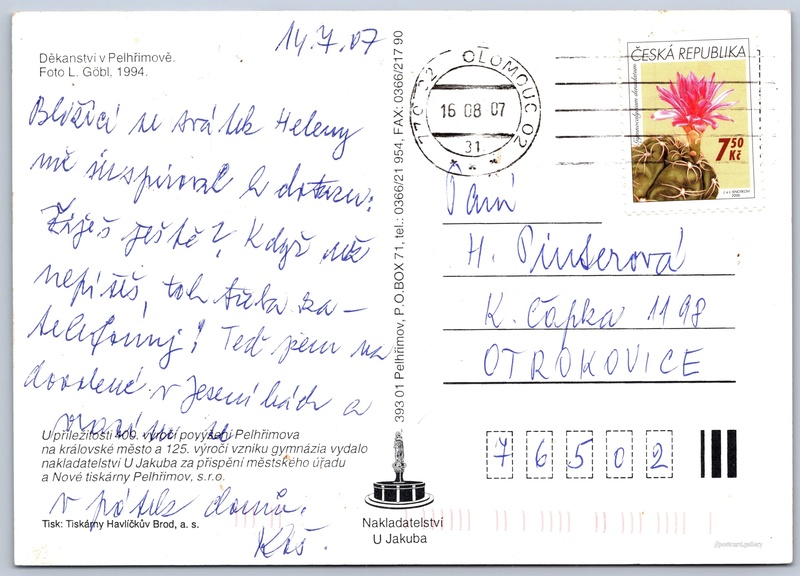 Děkanství v Pelhřimově.
Foto L. Göbl, 1994.
14.7.07
Blížící se svátek Heleny
mě inspiroval k dotazu:
Žiješ ještě? Když už
nepíšeš, tak třeba za-
telefonuj! Teď jsem na
dovolené v Jeseníkách a
vracím se
v pátek domů.
U příležitosti 400. výročí povýšení Pelhřimova
na královské město a 125. výročí vzniku gymnázia vydalo
nakladatelství U Jakuba za přispění městského úřadu
a Nové tiskárny Pelhřimov, s.r.o.
Tisk: Tiskárny Havlíčkův Brod, a. s.
393 01 Pelhřimov, P.O.BOX 71, tel.: 0366/21 954, FAX: 0366/217 90
Nakladatelství
U Jakuba
OLOMOUC 02
16 08 07
31
ČESKÁ REPUBLIKA
7,50
Kč
Paní
H. Pinterová
K. Čapka 1198
OTROKOVICE
76502